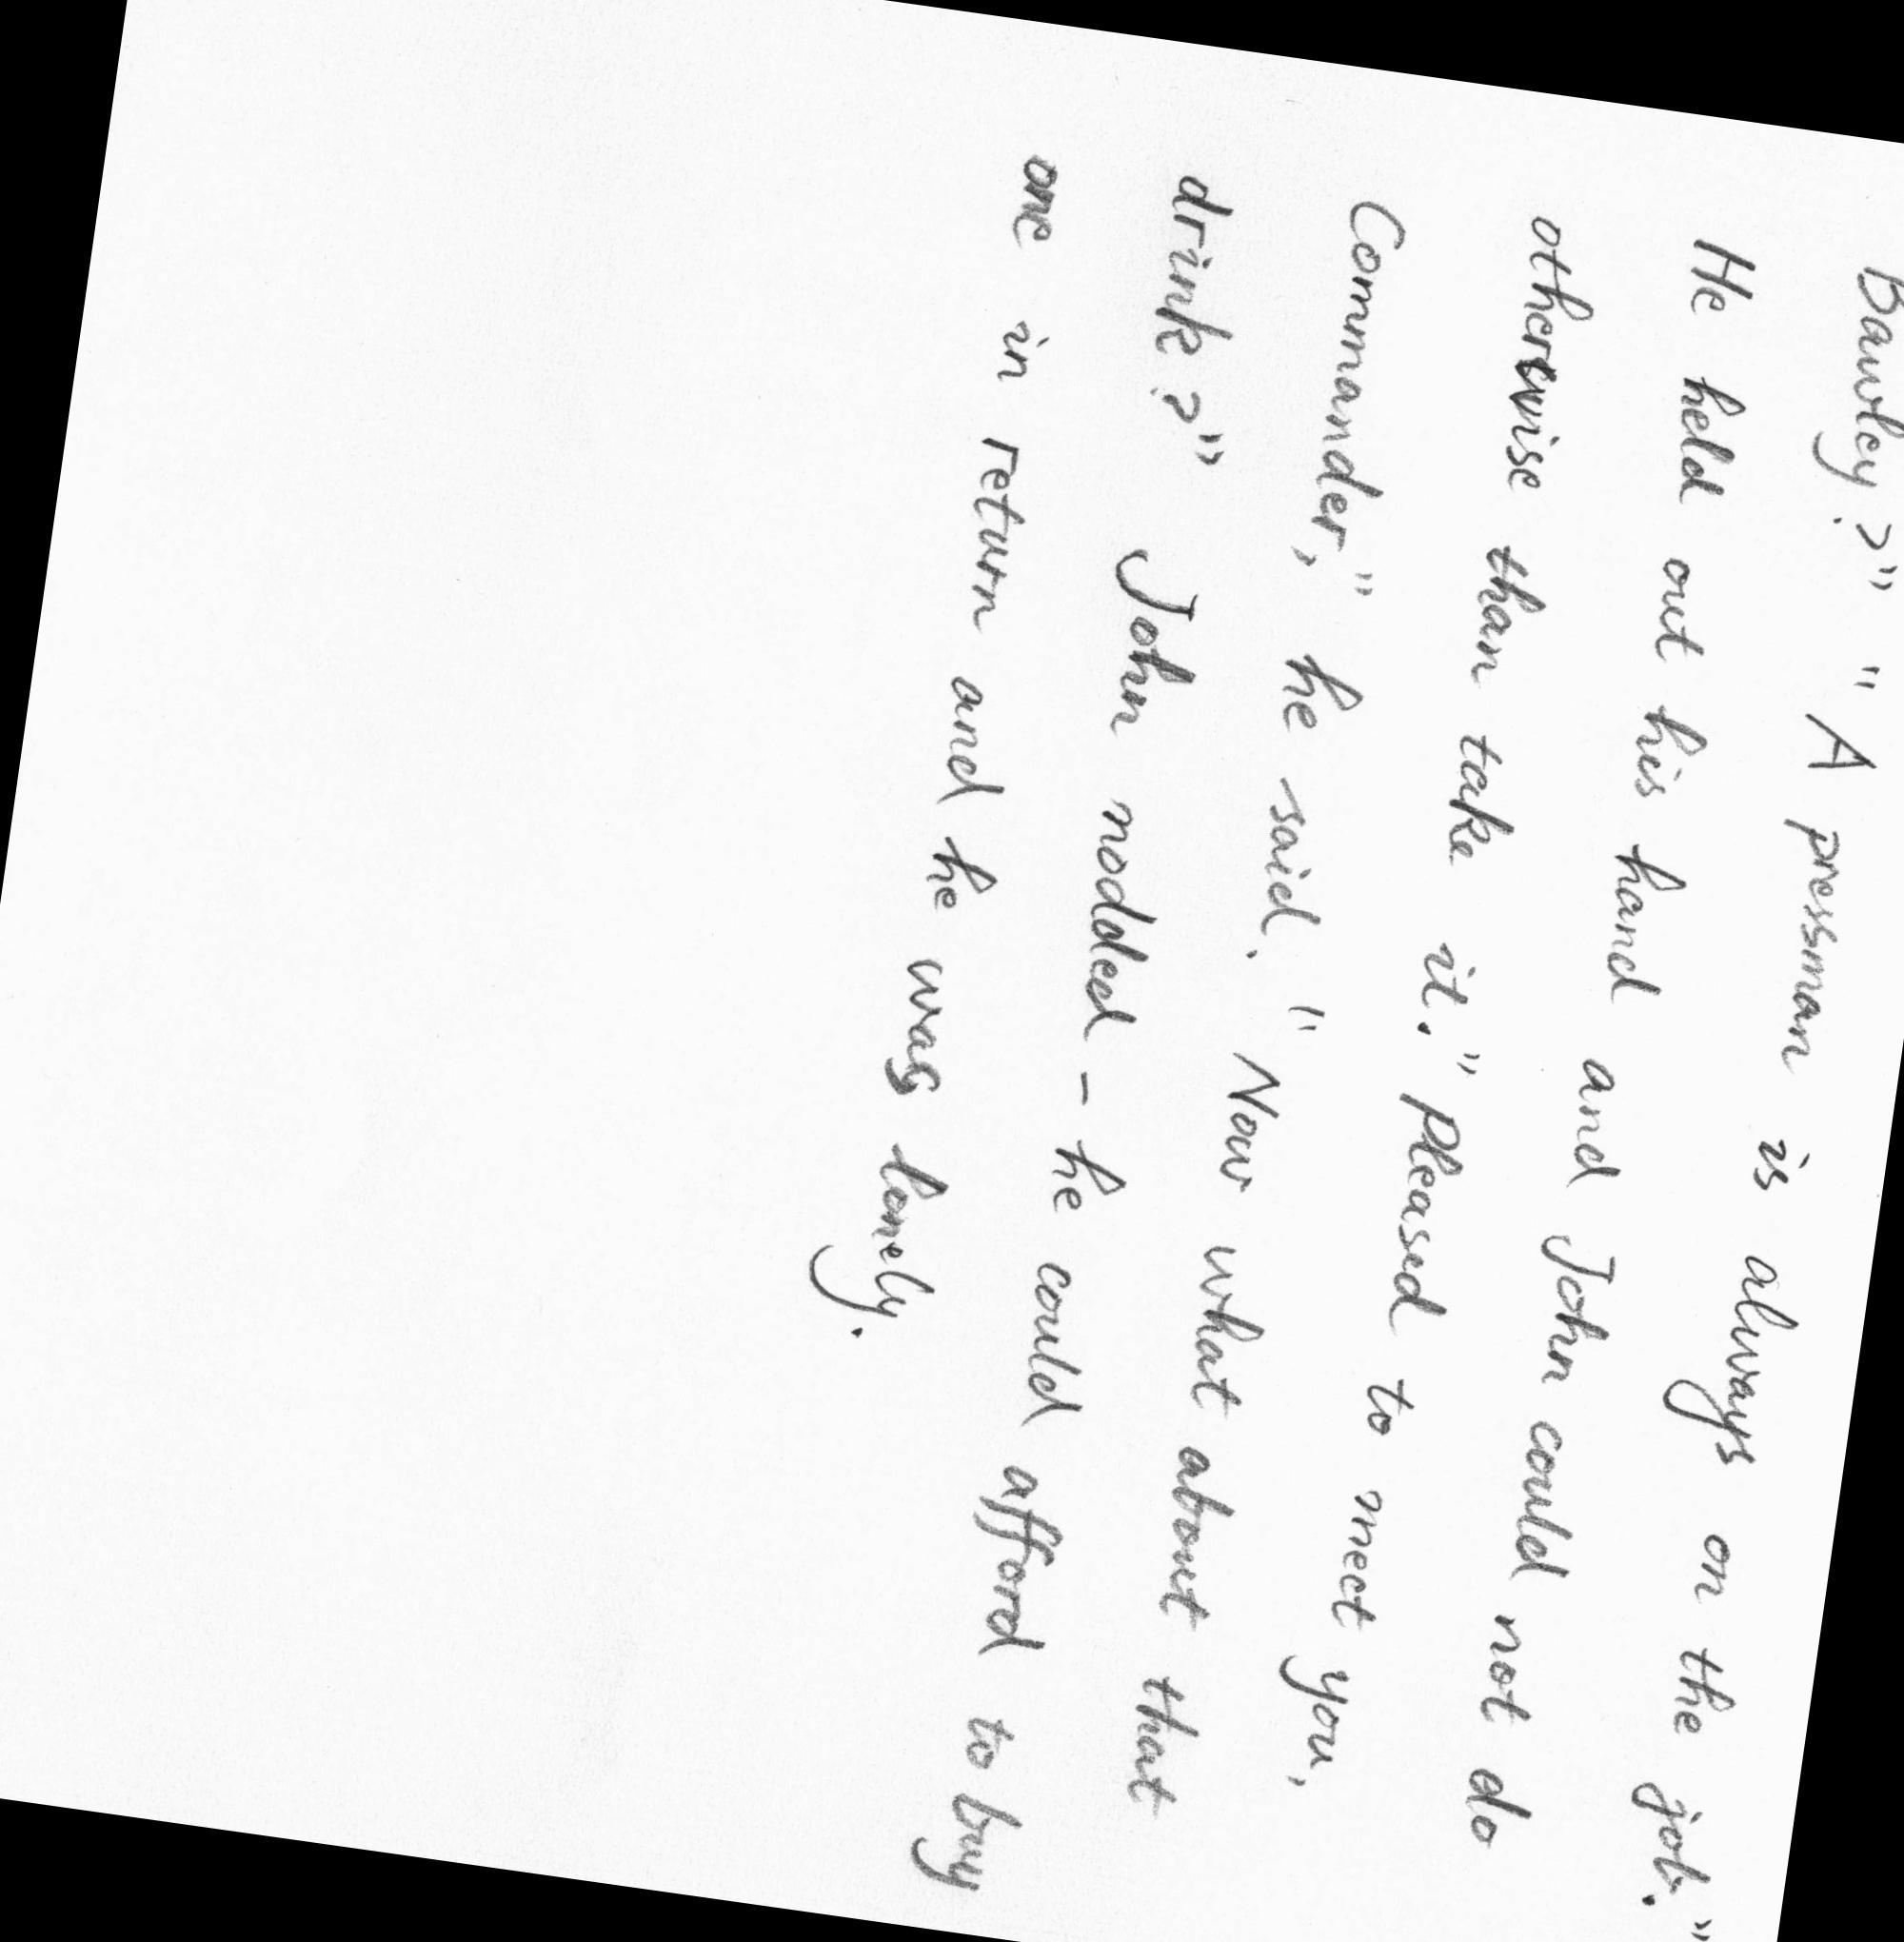 Bawley?" "A pressman is always on the job."
He held out his hand and John could not do
otherwise than take it. "Pleased to meet you,
Commander," he said. "Now what about that
drink?" John nodded - he could afford to buy
one in return and he was lonely.